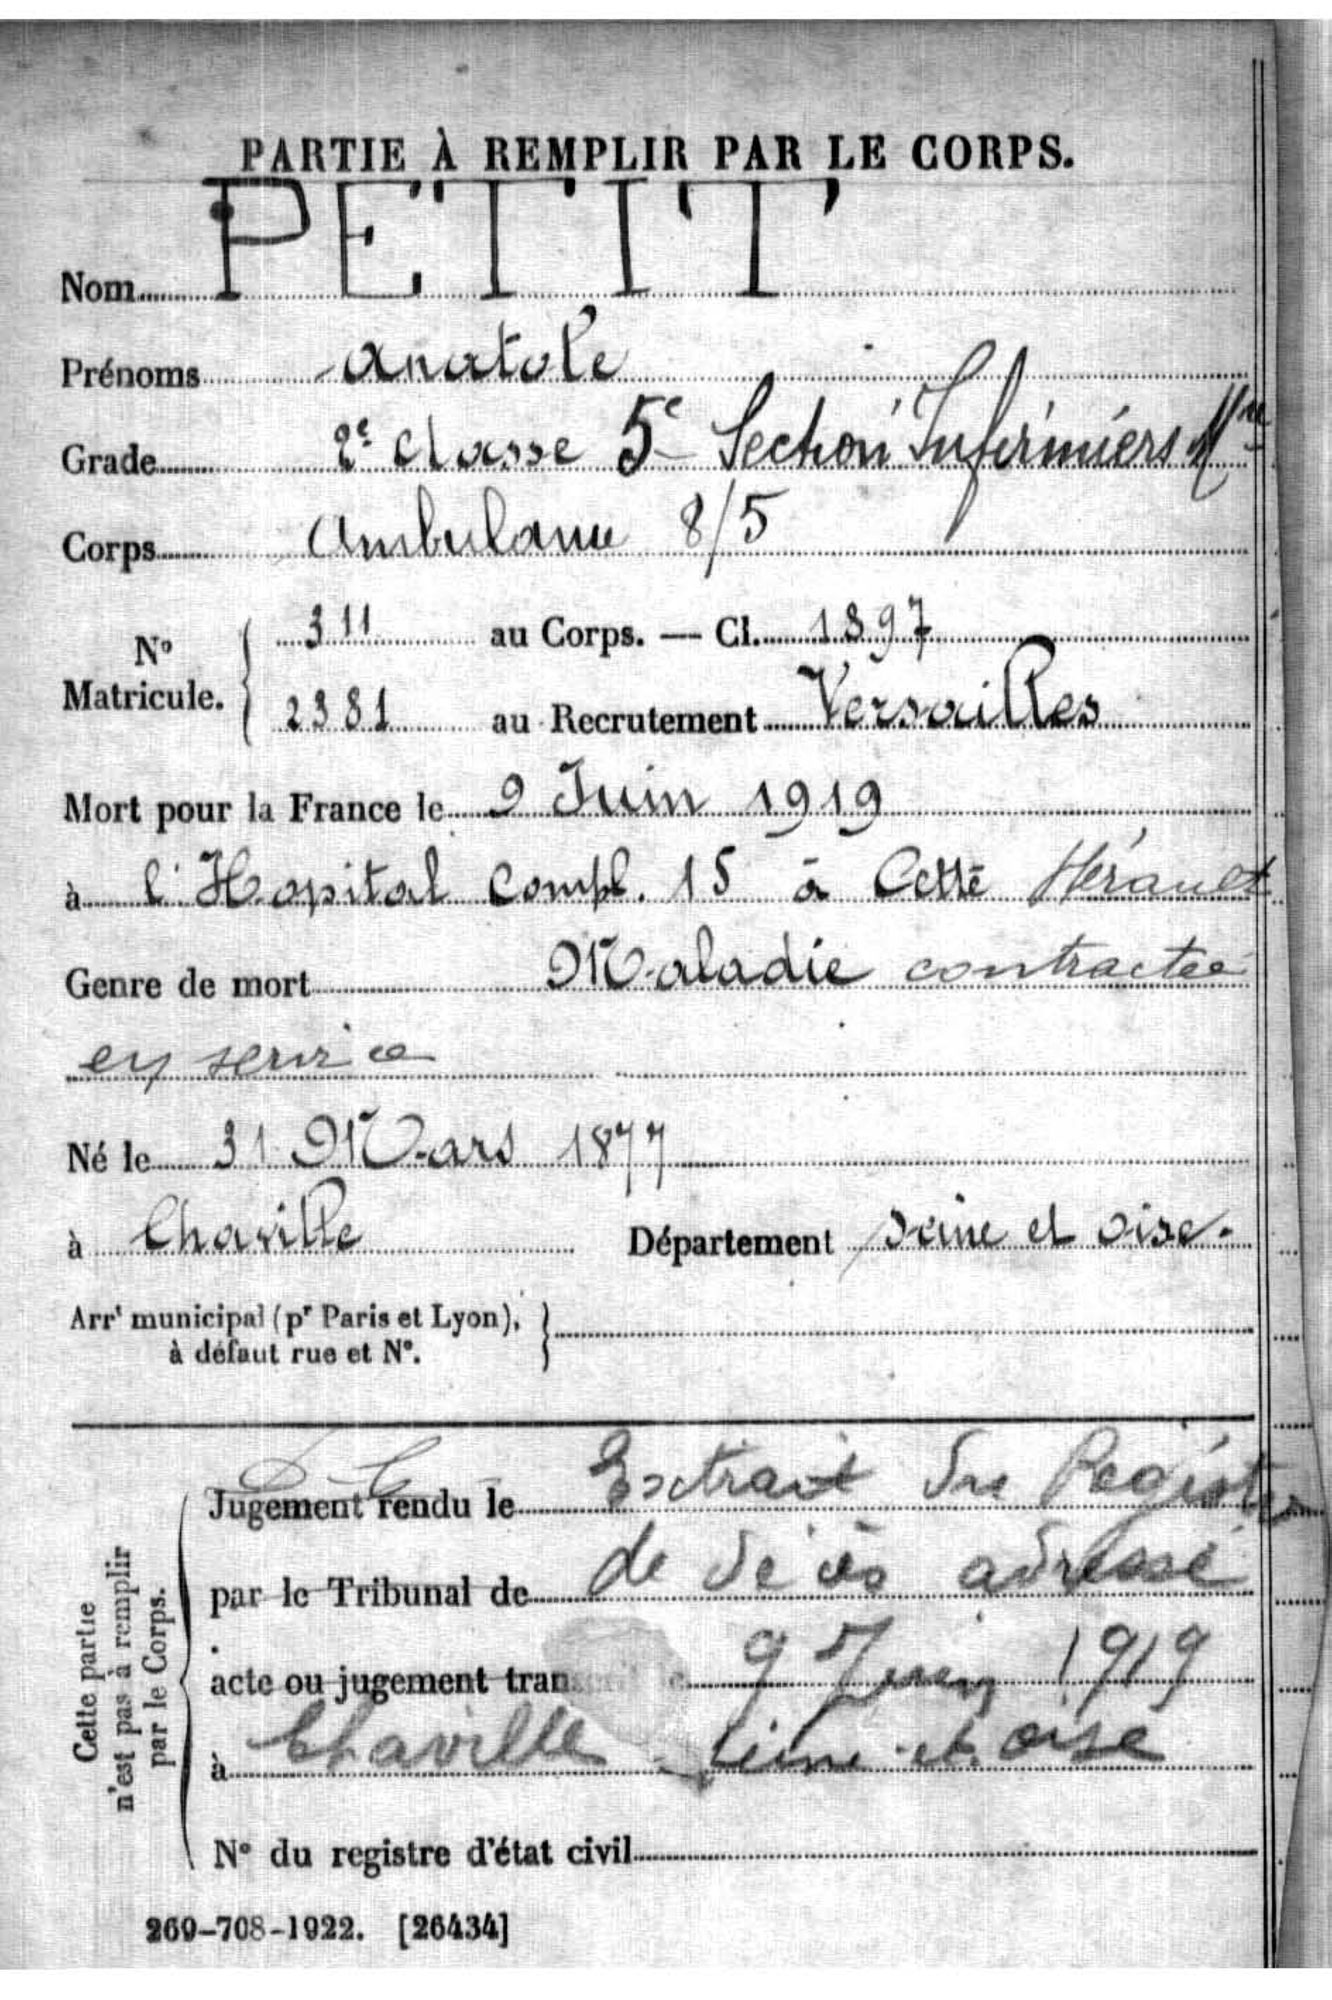 PARTIE À REMPLIR PAR LE CORPS.
Nom PETIT
Prénoms Anatole
Grade 2e classe 5e Section Infirmiers Mres
Corps Ambulance 8/5
No Matricule. 311 au Corps. — Cl. 1897
2381 au Recrutement Versailles
Mort pour la France le 9 Juin 1919
à l'Hopital Compl. 15 à Cette Hérault
Genre de mort Maladie contractée
en service
Né le 31 Mars 1877
à Chaville Département Seine et Oise.
Arrt municipal (pr Paris et Lyon),
à défaut rue et No.
Cette partie
n'est pas à remplir
par le Corps.
Jugement rendu le Extrait du Registre
par le Tribunal de de décès adressé
acte ou jugement tran 9 Juin 1919
à Chaville Seine et oise
No du registre d'état civil
269-708-1922. [26434]